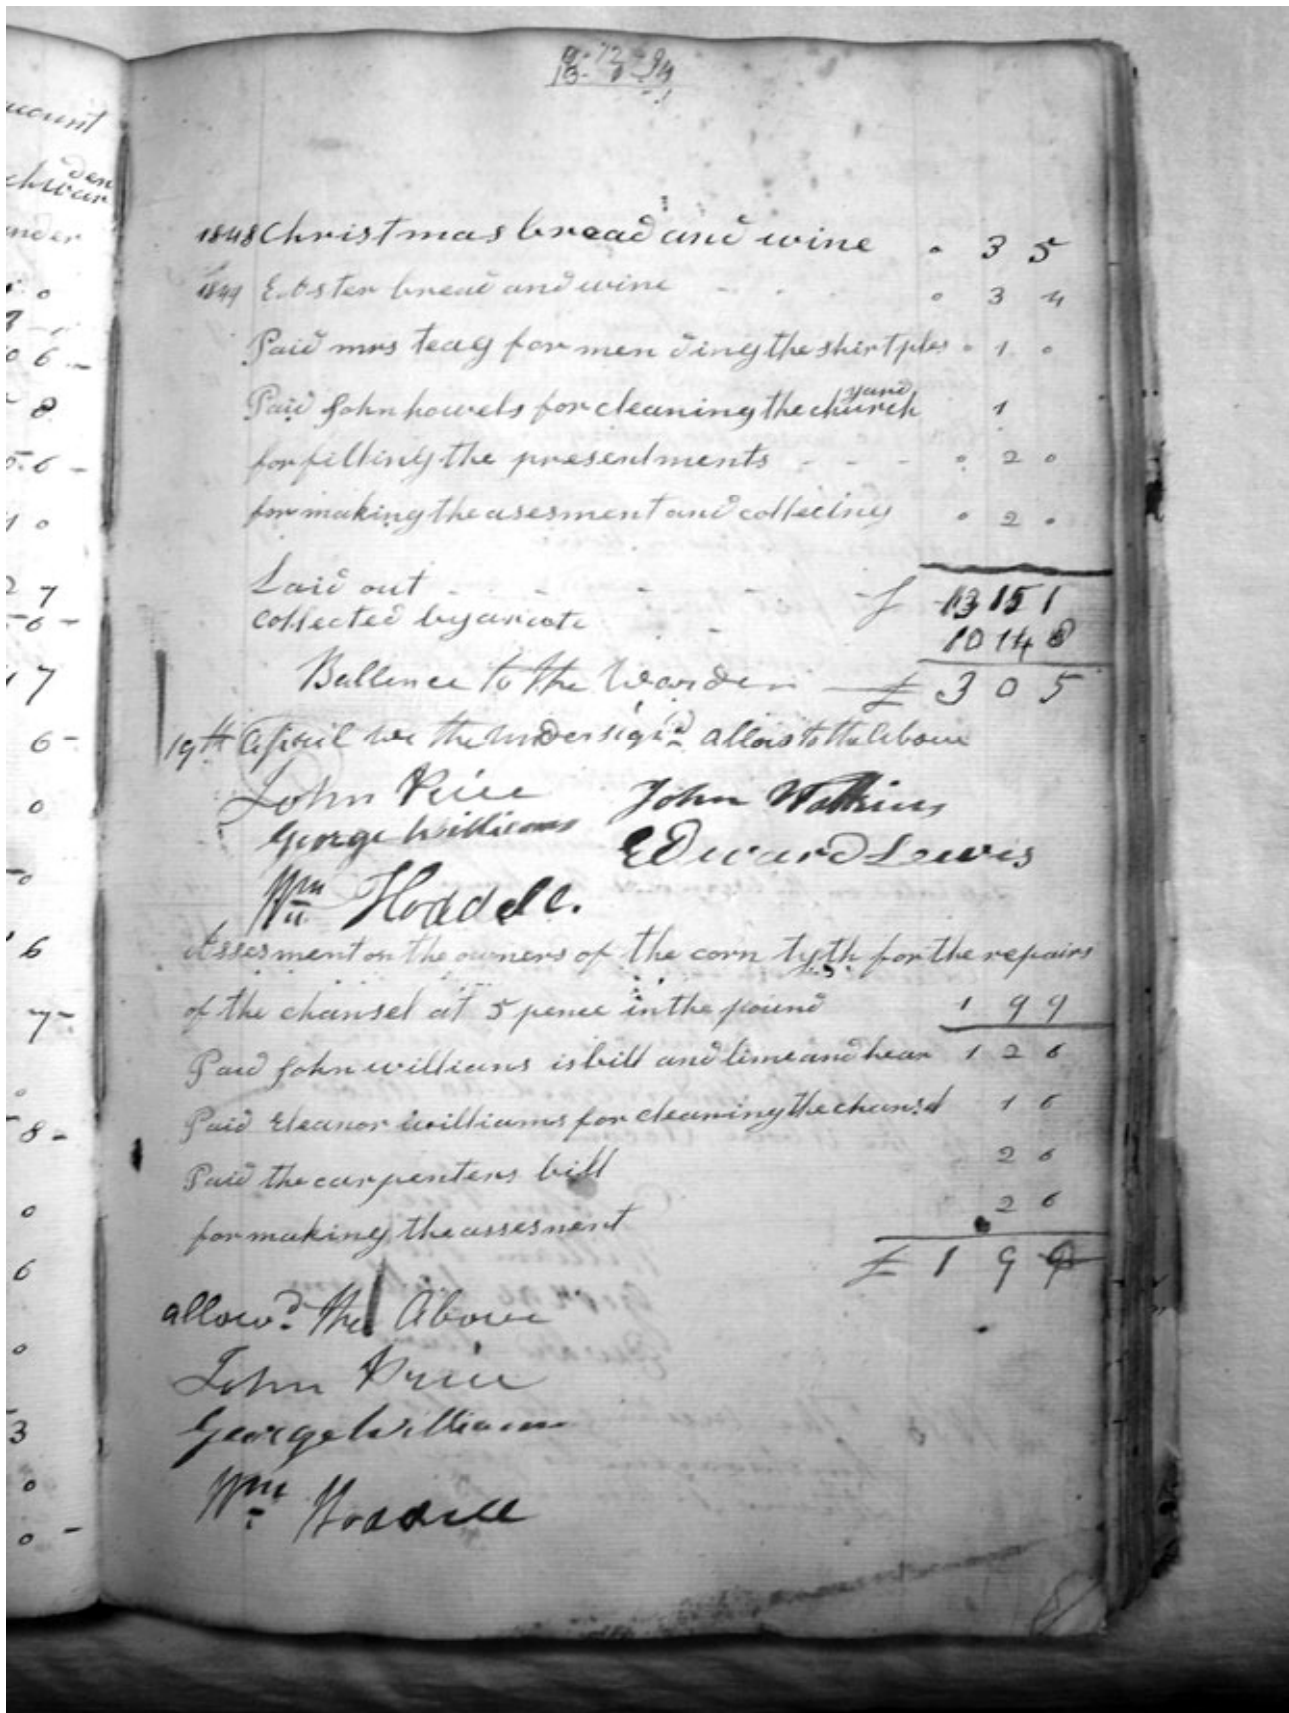 1848 Christmas bread and wine 0 3 5
1849 Easter bread and wine - - - 0 3 4
Paid mrs teag for men ding the shirtples 0 1 0
Paid John howels for cleaning the church yard 1
for filling the presentments - - - 0 2 0
for making the asesment and collecting 0 2 0
Laid out - - - - - £ 13 15 1
collected by a rate - 10 14 8
Ballence to the Warden - £ 3 0 5
19th April we the undersigd allow to the Above
John Price John Watkins
George Williams Edward Lewis
Wm Hoddell.
Assesment on the owners of the corn tyth for the repairs
of the chansel at 5 pence in the pound 1 9 9
Paid John williams is bill and lime and hear 1 2 6
Paid Eleanor williams for cleaning the chansel 1 6
Paid the carpenters bill 2 6
for making the assesment 2 6
£ 1 9 9
allowd the Above
John Price
George William
Wm Hoddell